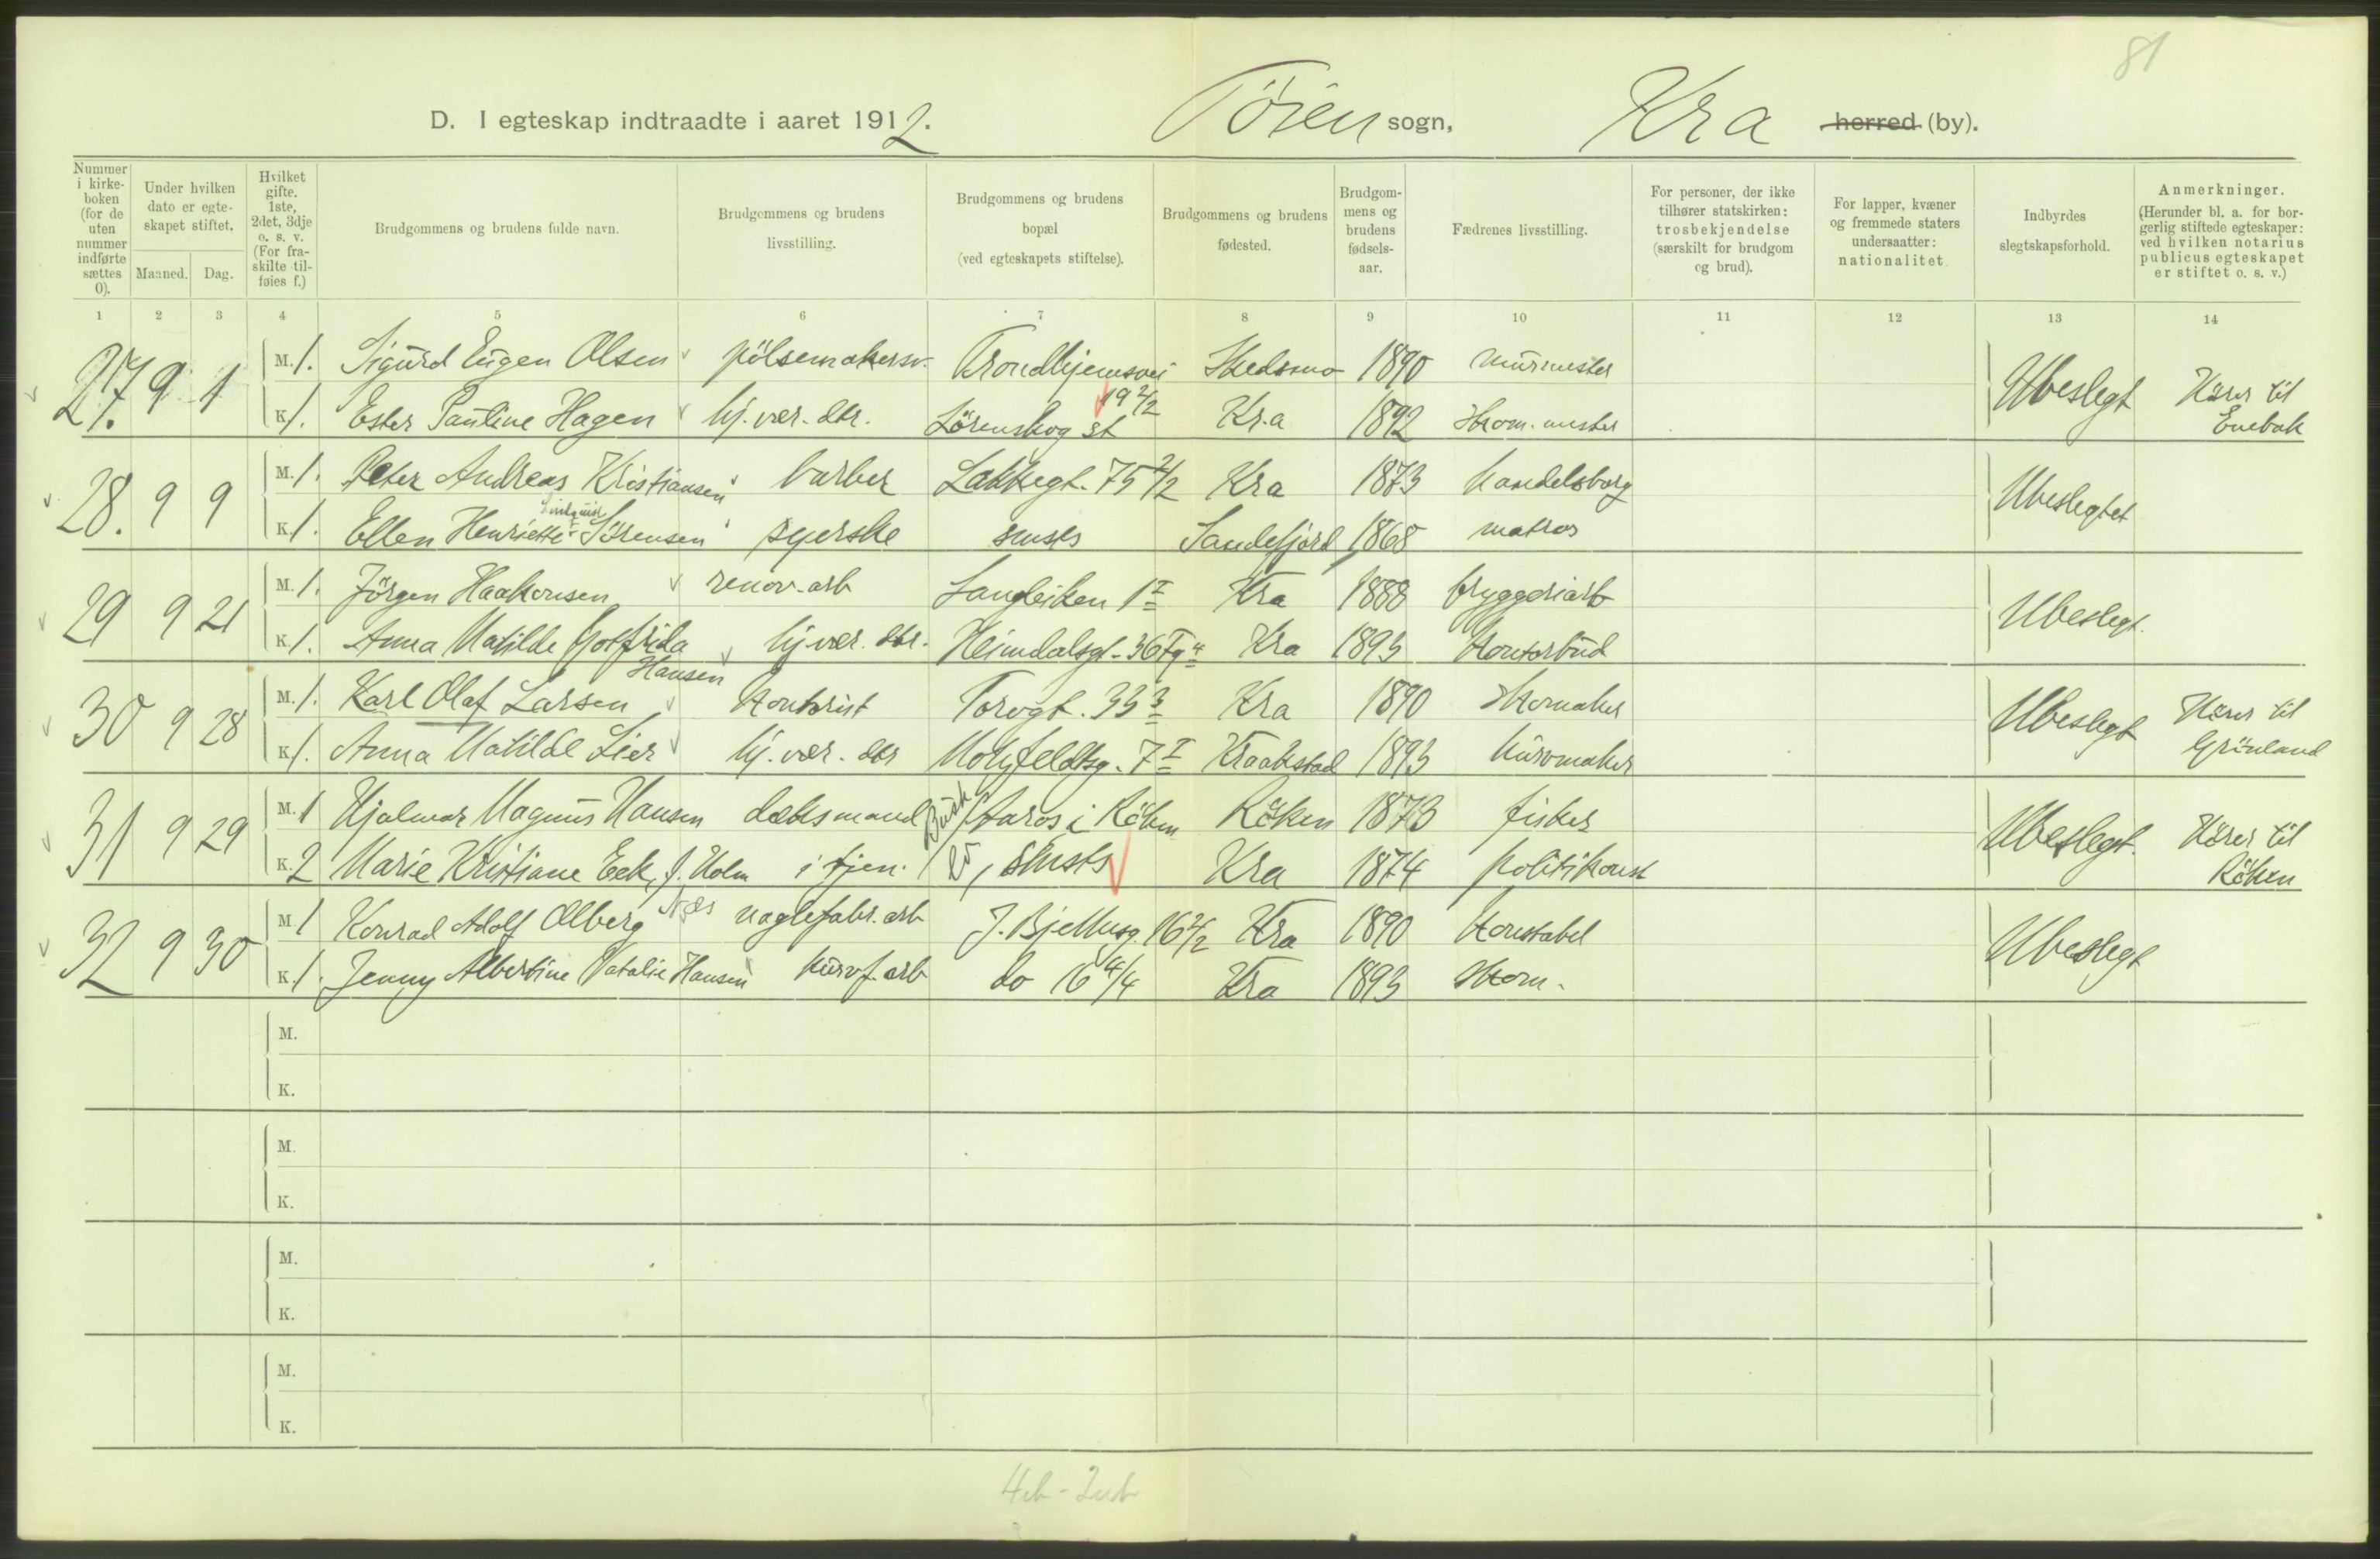 81
D. I egteskap indtraadte i aaret 1912. Töien sogn, Kra herred (by).
Nummer i kirkeboken (for de uten nummer indførte sættes 0).
Under hvilken dato er egteskapet stiftet.
Maaned. Dag.
Hvilket gifte. 1ste, 2det, 3dje o. s. v. (For fraskilte tilføies f.)
Brudgommens og brudens fulde navn.
Brudgommens og brudens livsstilling.
Brudgommens og brudens bopæl (ved egteskapets stiftelse).
Brudgommens og brudens fødested.
Brudgommens og brudens fødselsaar.
Fædrenes livsstilling.
For personer, der ikke tilhører statskirken: trosbekjendelse (særskilt for brudgom og brud).
For lapper, kvæner og fremmede staters undersaatter: nationalitet
Indbyrdes slegtskapsforhold.
Anmerkninger. (Herunder bl. a. for borgerlig stiftede egteskaper: ved hvilken notarius publicus egteskapet er stiftet o. s. v.)
1 2 3 4 5 6 7 8 9 10 11 12 13 14
27. 9 1 M. 1. Sigurd Eugen Olsen pölsemakersv. Trondhjemsvei 19 2/2 Skedsmo 1890 murmester Ubeslegt Hörer til
K. 1. Ester Pauline Hagen hj. vær. dtr. Lörenskog st Kr.a 1892 Skom. mester Enebak
28. 9 9 M. 1. Peter Andreas Kristiansen barber Lakkegt. 75 2/2 Kra 1873 handelsborg Ubeslegtet
K. 1. Ellen Henriette Sörensen syerske smsts Sandefjord 1868 matros
29 9 21 M. 1. Jörgen Haakonsen renov. arb Langleiken 1 I Kra 1888 bryggeriarb Ubeslegt.
K. 1. Anna Matilde Gotfrida Hansen hj. vær. dtr. Heimdalsgt. 36 Kra 1893 Kontorbud
30 9 28 M. 1. Karl Olaf Larsen Kontorist Torvgt. 33 3 Kra 1890 Skomaker Ubeslegt Hörer til
K. 1. Anna Matilde Lier hj. vær. dtr Motzfeldtsg. 7 I Kraakstad 1893 kurvmaker Grönland
31 9 29 M. 1 Hjalmar Magnus Hansen dæksmand Busk Aaros i Röken Röken 1873 fisker Ubeslegt. Hörer til
K. 2 Marie Kristiane Eek, f. Holm i tjen. smsts Kra 1874 politikonst Röken
32 9 30 M. 1 Konrad Adolf Ølberg naglefabr. arb J. Bjellusg. 16 2/2 Kra 1890 Konstabel Ubeslegt
K. 1. Jenny Albertine Natalie Hansen kurvf. arb do 16 4/4 Kra 1893 Skom.
M.
K.
M.
K.
M.
K.
M.
K.